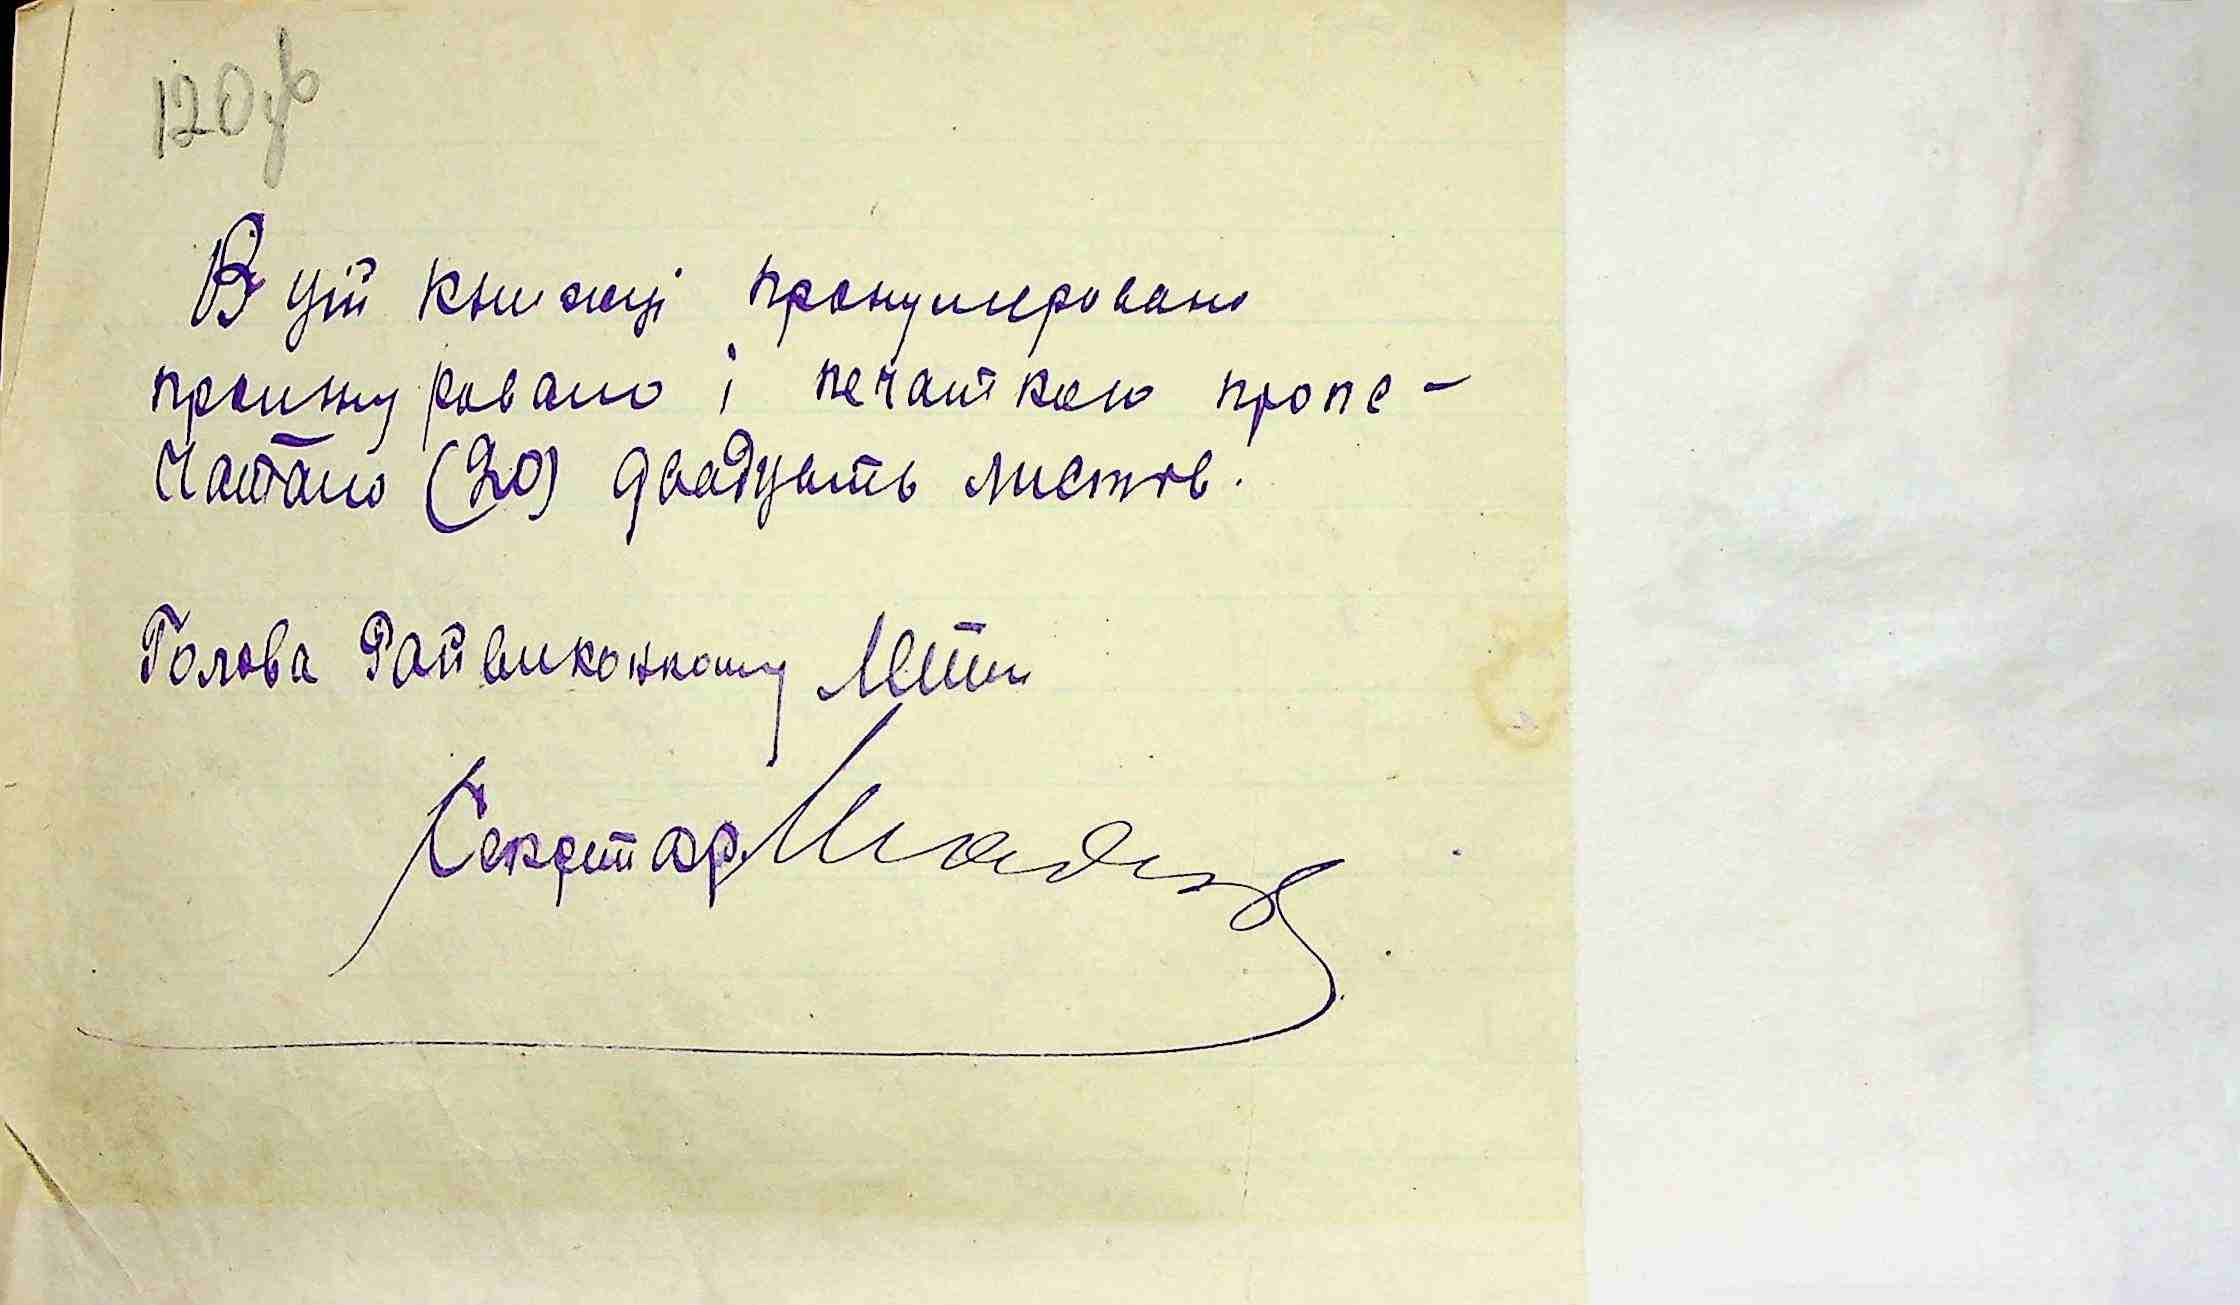 120зв
В цій книжці пронумеровано
прошнуровано і печаткою пропе-
чатано (20) двадцять листов.
Голова Райвиконкому
Секретар